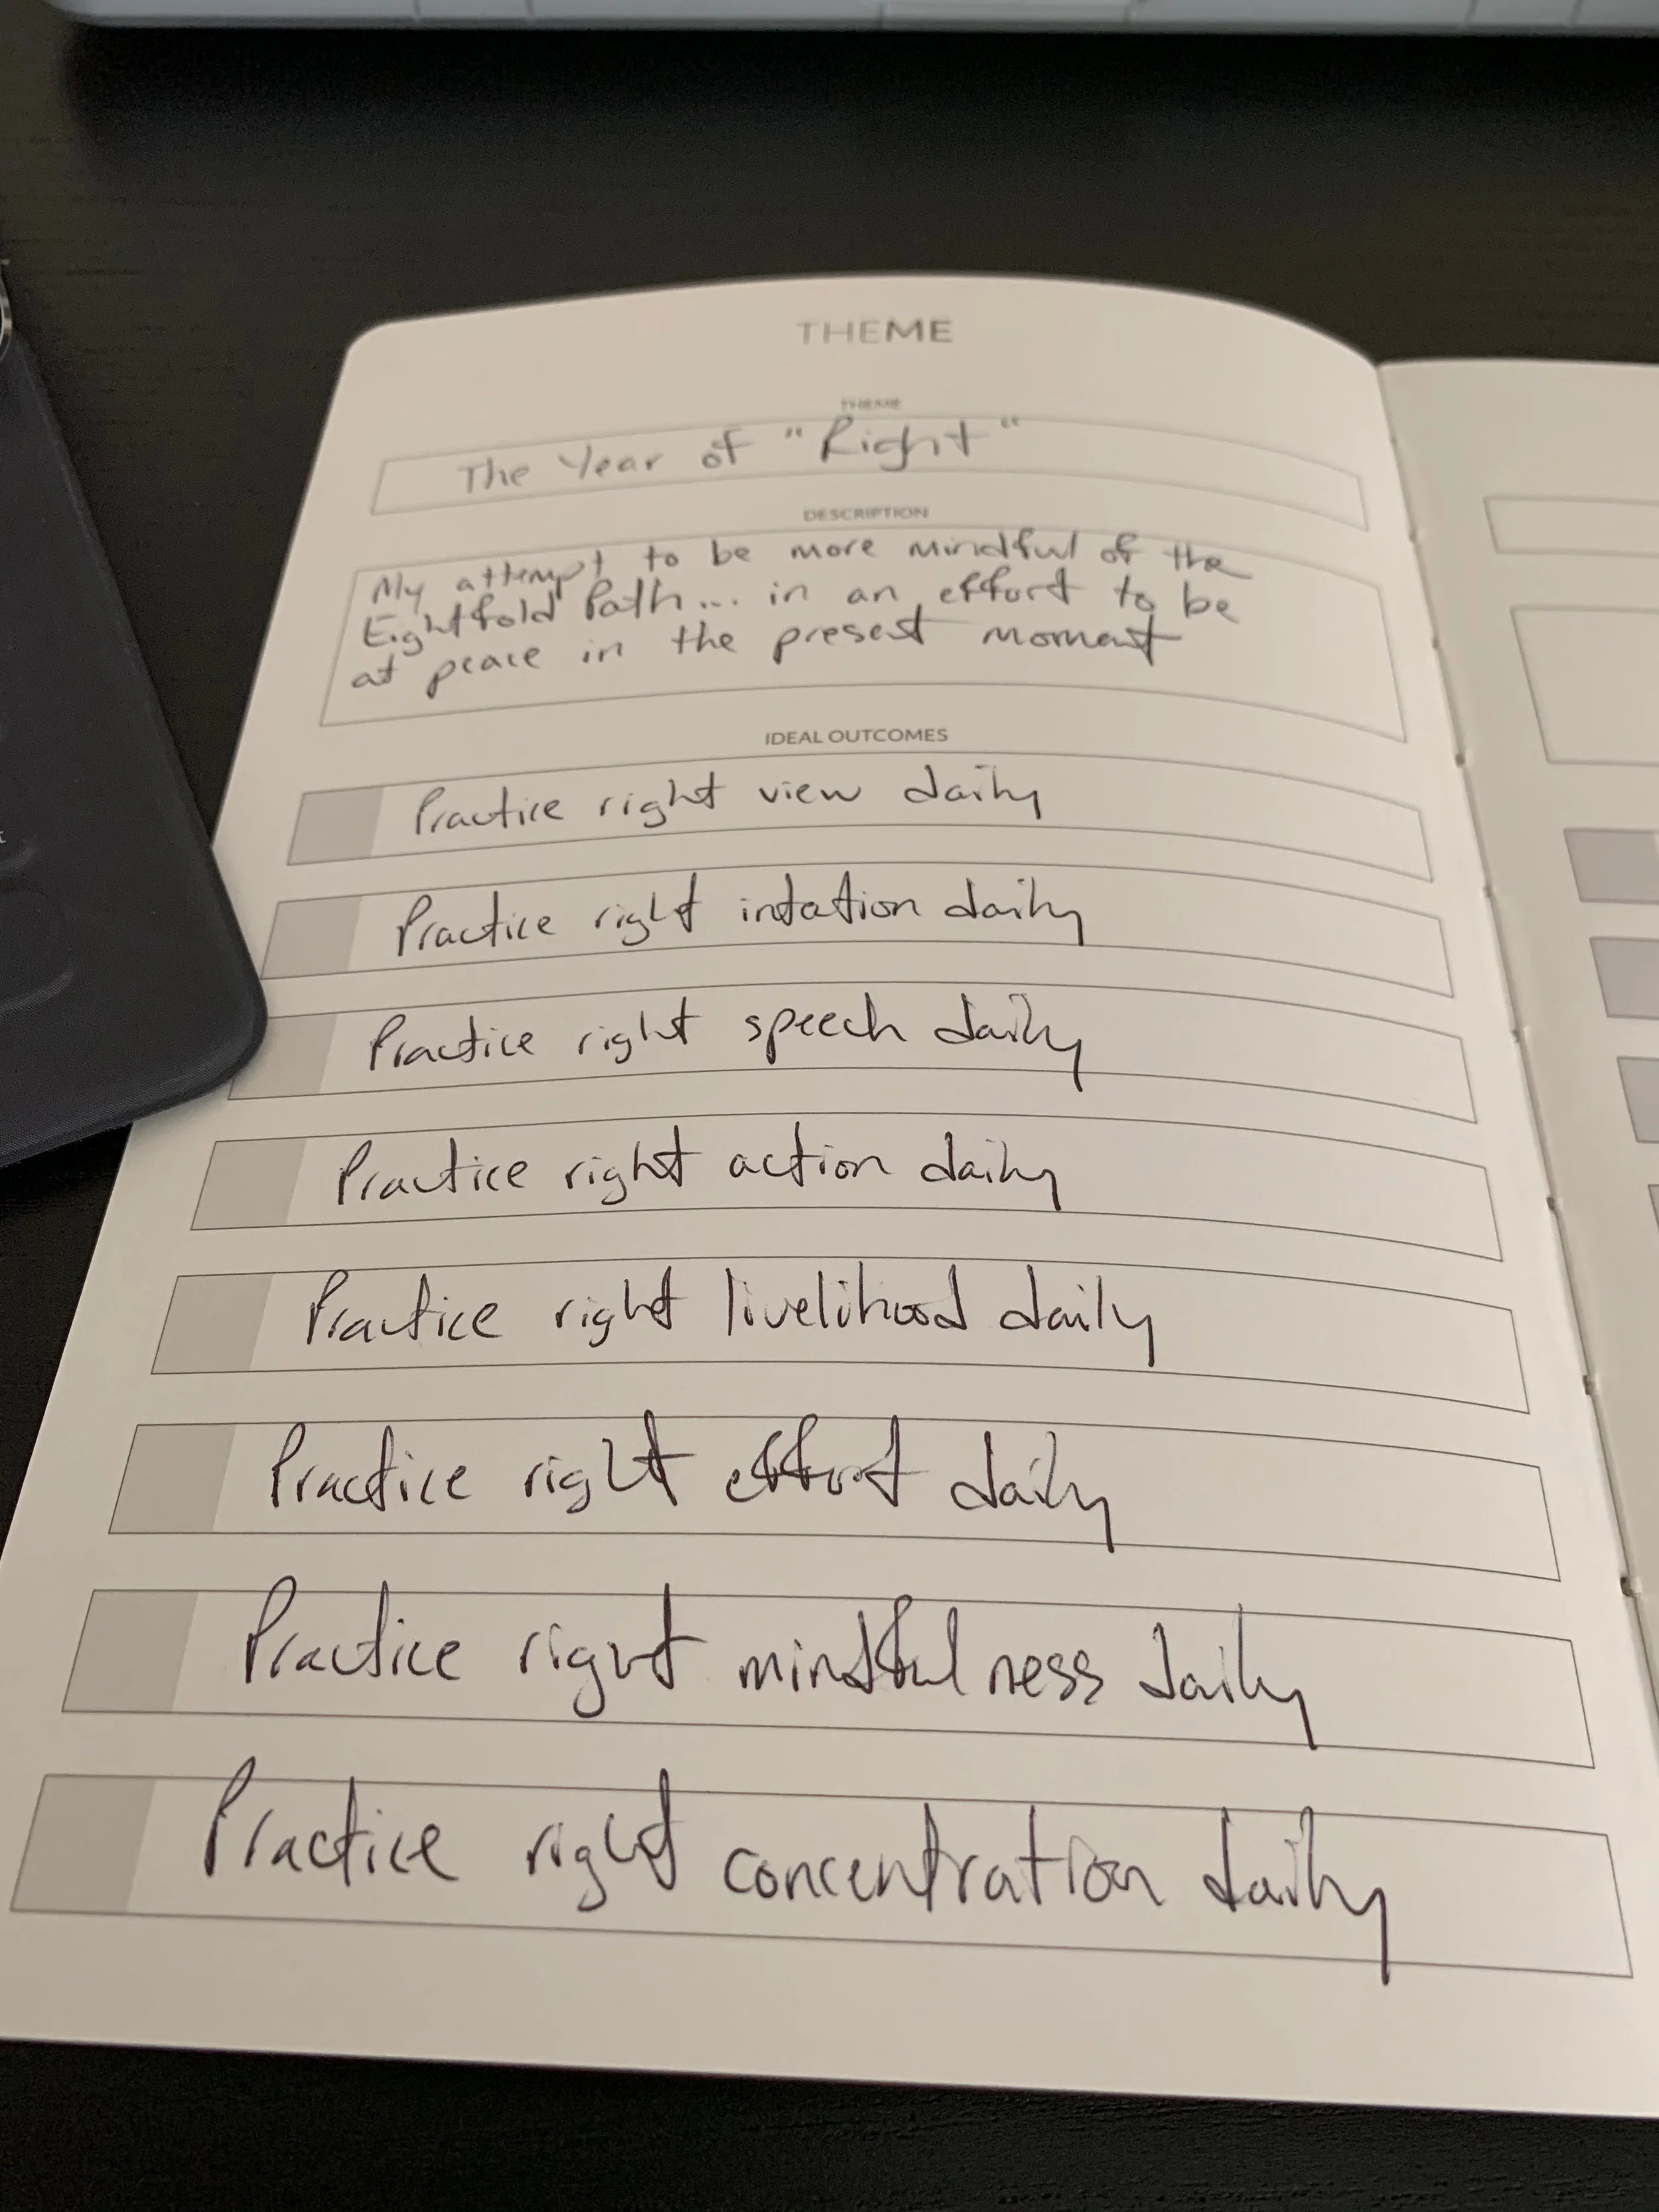 THEME
THEME
The Year of "Right"
DESCRIPTION
My attempt to be more mindful of the
Eightfold Path... in an effort to be
at peace in the present moment
IDEAL OUTCOMES
Practice right view daily
Practice right intation daily
Practice right speech daily
Practice right action daily
Practice right livelihood daily
Practice right effort daily
Practice right mindfulness daily
Practice right concentration daily